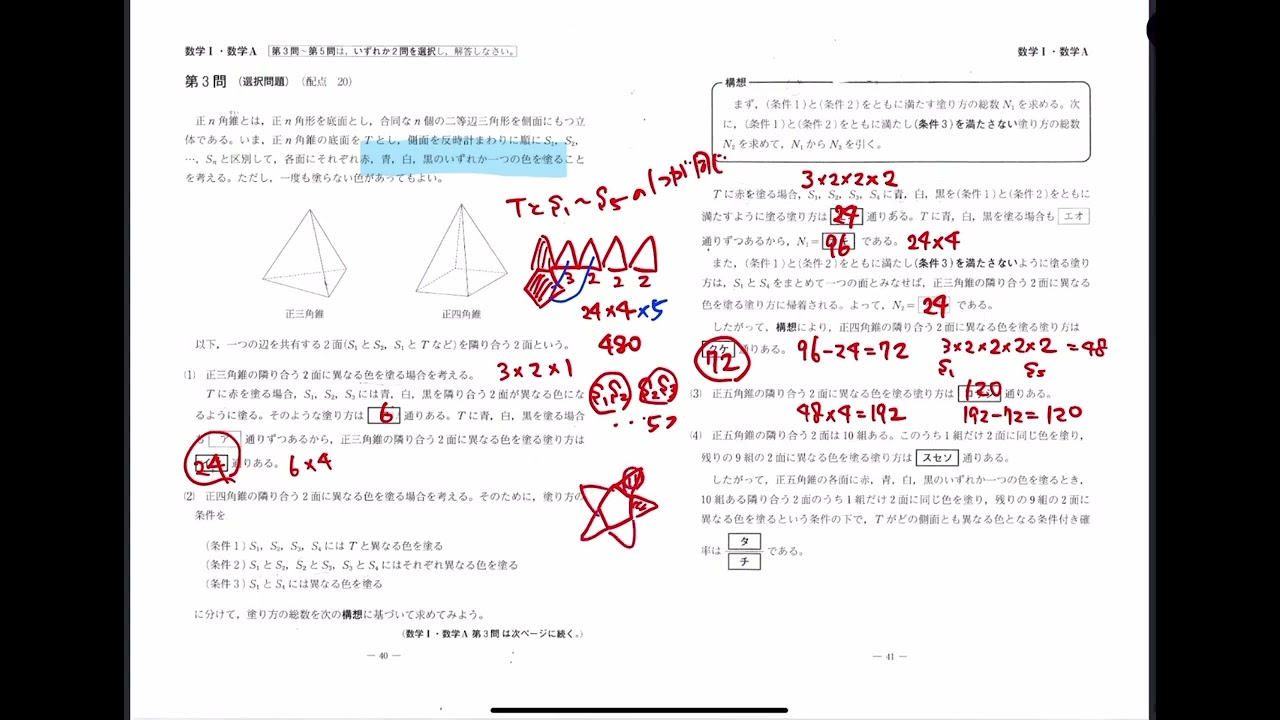 数学Ⅰ・数学A 第3問~第5問は,いずれか2問を選択し,解答しなさい。
第3問 (選択問題) (配点 20)
正n角錐とは,正n角形を底面とし,合同なn個の二等辺三角形を側面にもつ立
体である。いま,正n角錐の底面をTとし,側面を反時計まわりに順にS₁, S₂,
…, Sₙと区別して,各面にそれぞれ赤,青,白,黒のいずれか一つの色を塗ること
を考える。ただし,一度も塗らない色があってもよい。
正三角錐
正四角錐
以下,一つの辺を共有する2面(S₁とS₂, S₁とTなど)を隣り合う2面という。
(1) 正三角錐の隣り合う2面に異なる色を塗る場合を考える。
3×2×1
Tに赤を塗る場合,S₁, S₂, S₃には青,白,黒を隣り合う2面が異なる色にな
るように塗る。そのような塗り方は 6 通りある。Tに青,白,黒を塗る場合
も ア 通りずつあるから,正三角錐の隣り合う2面に異なる色を塗る塗り方は
24 通りある。 6×4
(2) 正四角錐の隣り合う2面に異なる色を塗る場合を考える。そのために,塗り方の
条件を
(条件1) S₁, S₂, S₃, S₄にはTと異なる色を塗る
(条件2) S₁とS₂, S₂とS₃, S₃とS₄にはそれぞれ異なる色を塗る
(条件3) S₁とS₄には異なる色を塗る
に分けて,塗り方の総数を次の構想に基づいて求めてみよう。
(数学Ⅰ・数学A 第3問は次ページに続く。)
― 40 ―
TとS₁~S₅の1つが同じ
3 2 2 2
24×4×5
480
S₁S₂ S₂S₃
‥5つ
数学Ⅰ・数学A
構想
まず,(条件1)と(条件2)をともに満たす塗り方の総数N₁を求める。次
に,(条件1)と(条件2)をともに満たし(条件3)を満たさない塗り方の総数
N₂を求めて,N₁からN₂を引く。
3×2×2×2
Tに赤を塗る場合,S₁, S₂, S₃, S₄に青,白,黒を(条件1)と(条件2)をともに
満たすように塗る塗り方は 24 通りある。Tに青,白,黒を塗る場合も エオ
通りずつあるから,N₁= 96 である。 24×4
また,(条件1)と(条件2)をともに満たし(条件3)を満たさないように塗る塗り
方は,S₁とS₄をまとめて一つの面とみなせば,正三角錐の隣り合う2面に異なる
色を塗る塗り方に帰着される。よって,N₂= 24 である。
したがって,構想により,正四角錐の隣り合う2面に異なる色を塗る塗り方は
72 通りある。 96-24=72 3×2×2×2×2=48
S₁ S₅
(3) 正五角錐の隣り合う2面に異なる色を塗る塗り方は 120 通りある。
48×4=192 192-72=120
(4) 正五角錐の隣り合う2面は10組ある。このうち1組だけ2面に同じ色を塗り,
残りの9組の2面に異なる色を塗る塗り方は スセソ 通りある。
したがって,正五角錐の各面に赤,青,白,黒のいずれか一つの色を塗るとき,
10組ある隣り合う2面のうち1組だけ2面に同じ色を塗り,残りの9組の2面に
異なる色を塗るという条件の下で,Tがどの側面とも異なる色となる条件付き確
率は タ/チ である。
― 41 ―